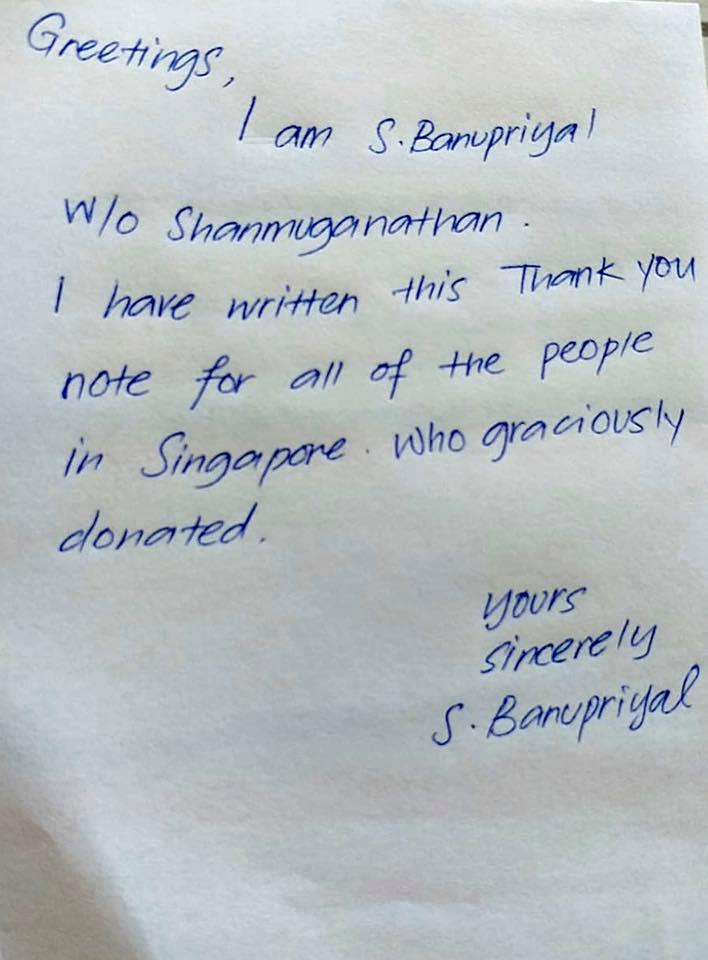 Greetings,
I am S. Banupriyal
W/o Shanmuganathan.
I have written this Thank you
note for all of the people
in Singapore. who graciously
donated.
yours
sincerely
S. Banupriyal